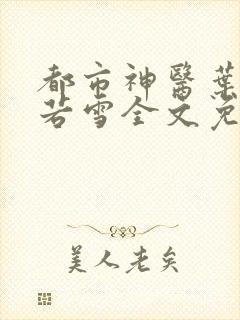 都市神醫葉
若雪全文免
美人老矣